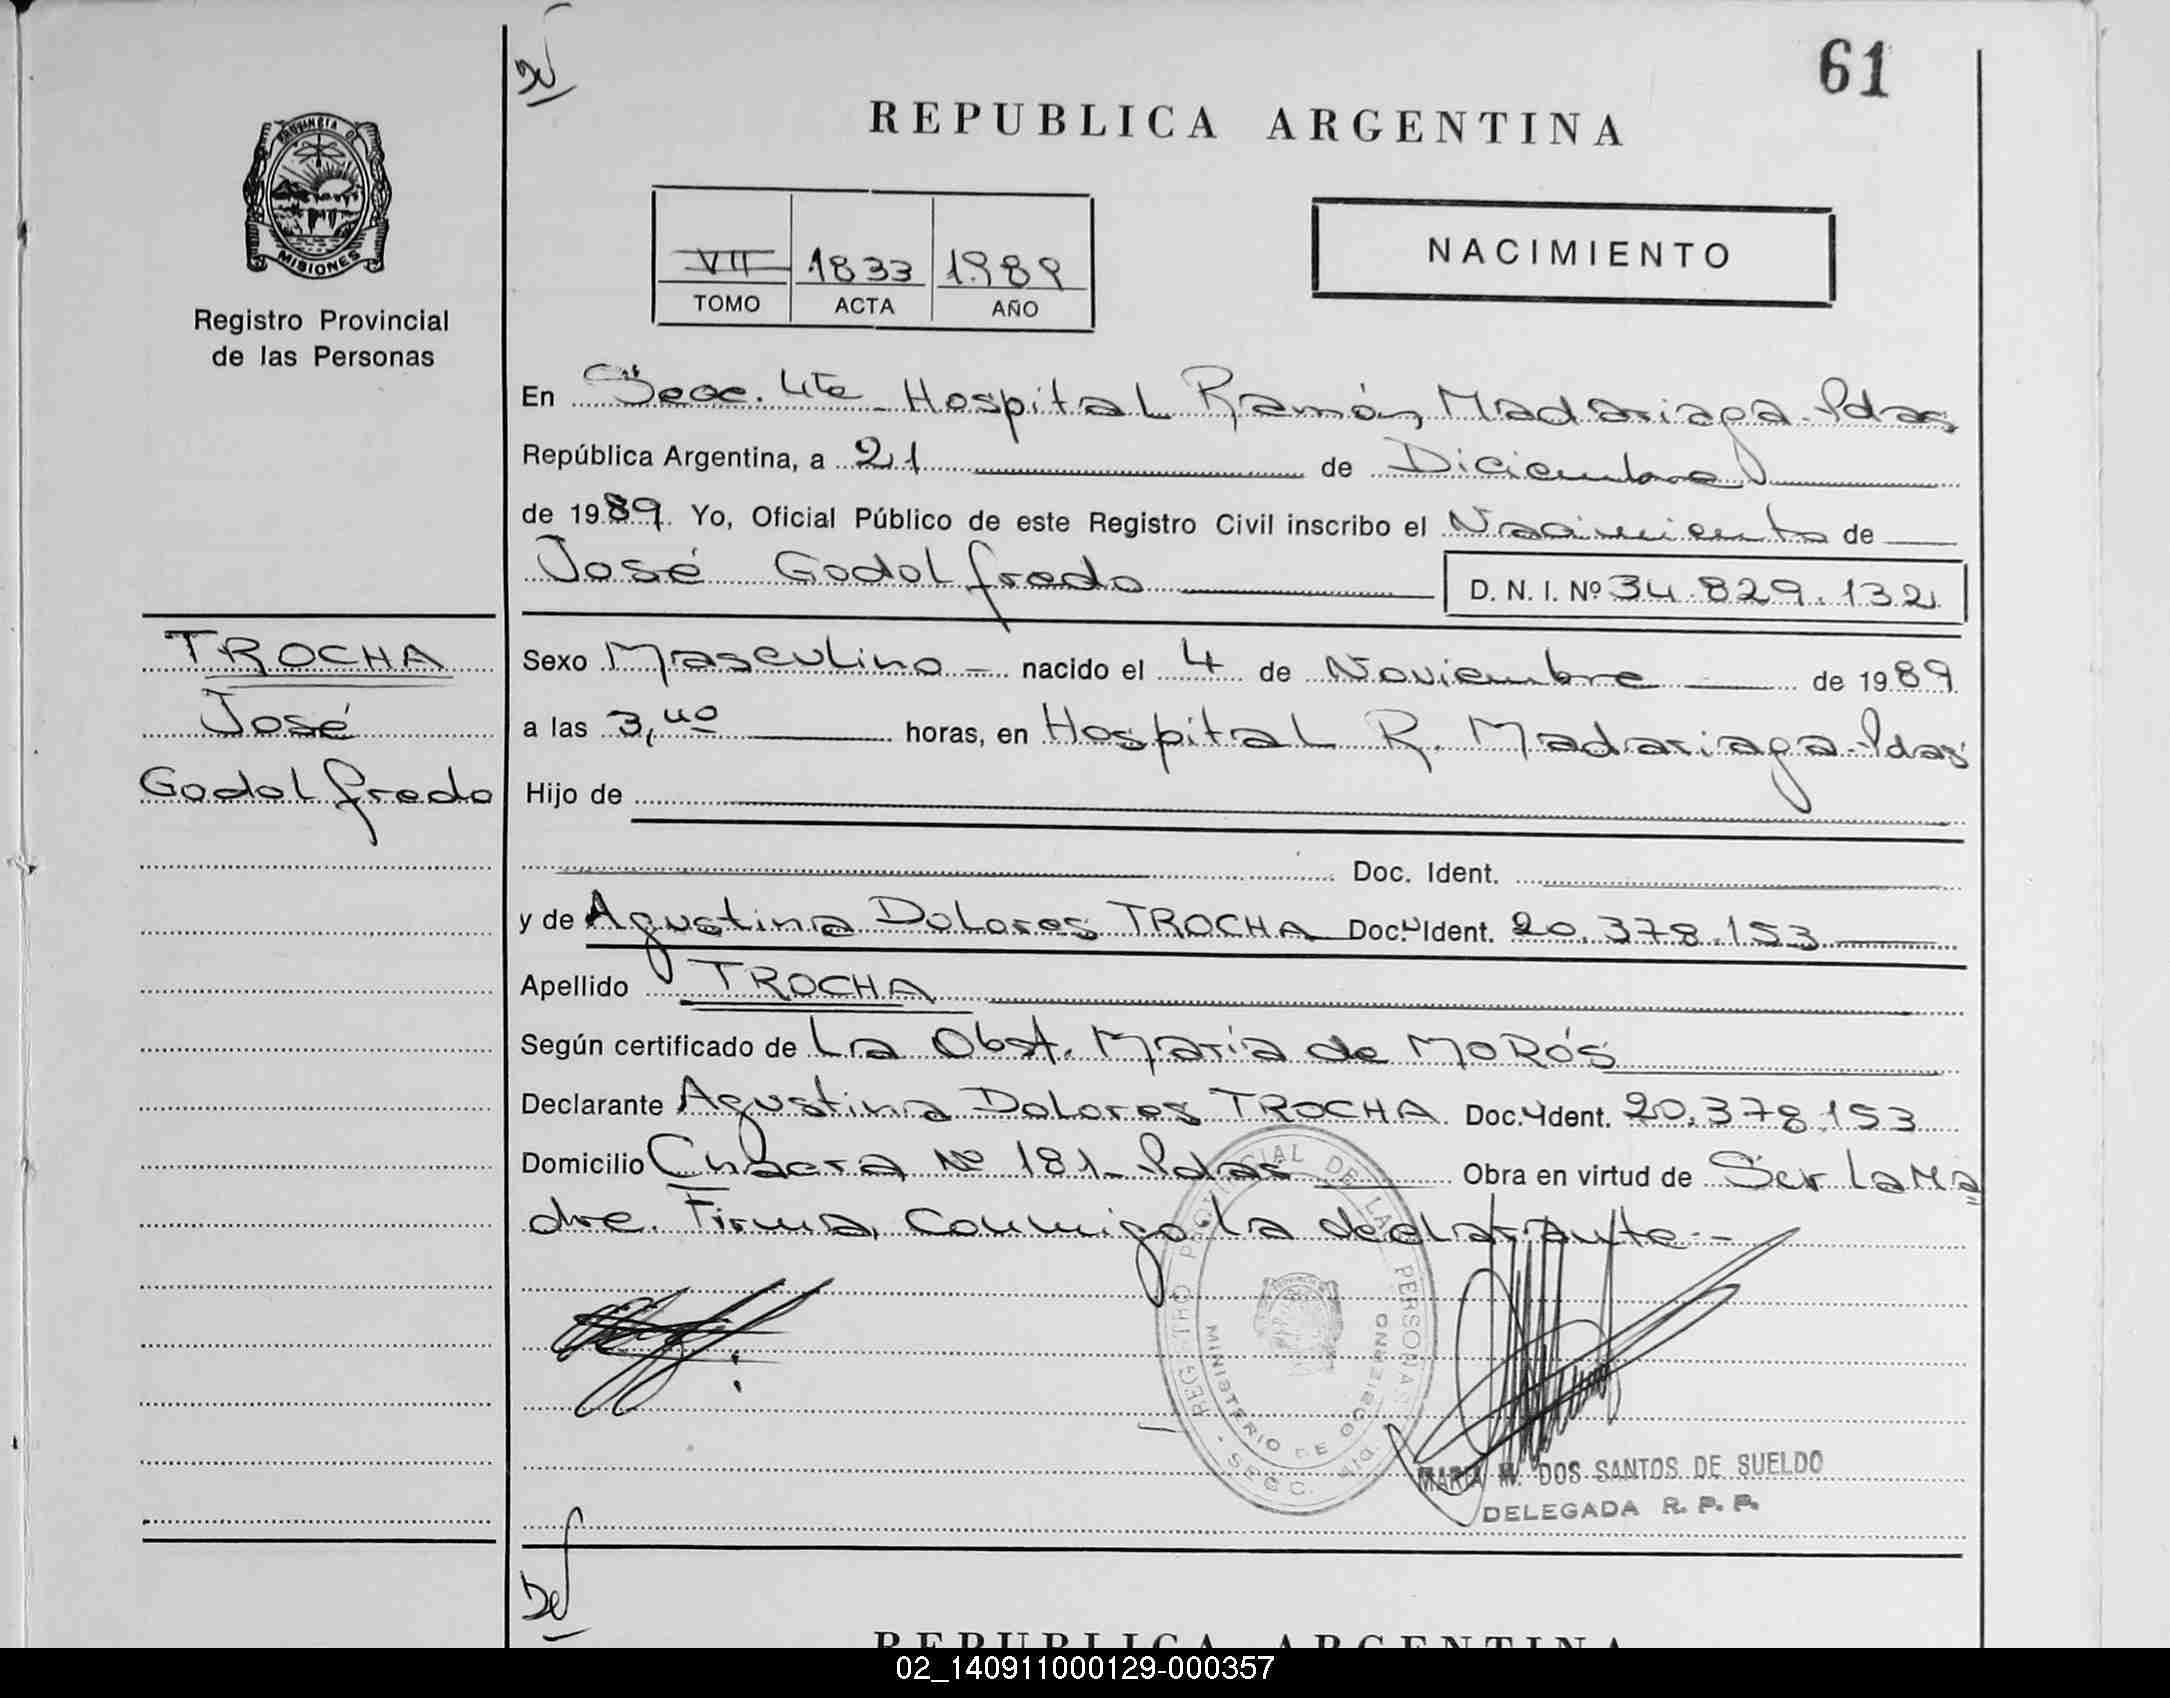 61
REPUBLICA ARGENTINA
PROVINCIA DE
MISIONES
Registro Provincial
de las Personas
VII 1833 1989
TOMO ACTA AÑO
NACIMIENTO
En Secc. 4ta Hospital Ramón Madariaga-Pdas
República Argentina, a 21 de Diciembre
de 1989. Yo, Oficial Público de este Registro Civil inscribo el Nacimiento de
José Godolfredo D. N. I. Nº 34.829.132
TROCHA
José
Godolfredo
Sexo Masculino - nacido el 4 de Noviembre de 1989
a las 3,40 horas, en Hospital R. Madariaga-Pdas
Hijo de
Doc. Ident.
y de Agustina Dolores TROCHA Doc. Ident. 20.378.153
Apellido TROCHA
Según certificado de La Obst. María de MORÓS
Declarante Agustina Dolores TROCHA Doc. Ident. 20.378.153
Domicilio Nº 181- Pdas Obra en virtud de Ser La Ma
dre. Firma conmigo la declarante.-
REGISTRO PROVINCIAL DE LAS PERSONAS
MINISTERIO DE GOBIERNO
SECC.
MARIA M. DOS SANTOS DE SUELDO
DELEGADA R. P. P.
REPUBLICA ARGENTINA
02_140911000129-000357